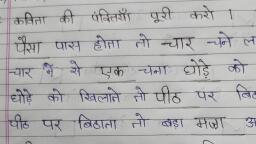 कविता की पंक्तियाँ पूरी करो।
पैसा पास होता तो चार चने ल
चार में से एक चना घोड़े को
घोड़े को खिलाते तो पीठ पर बि
पीठ पर बिठाता तो बड़ा मजा अ